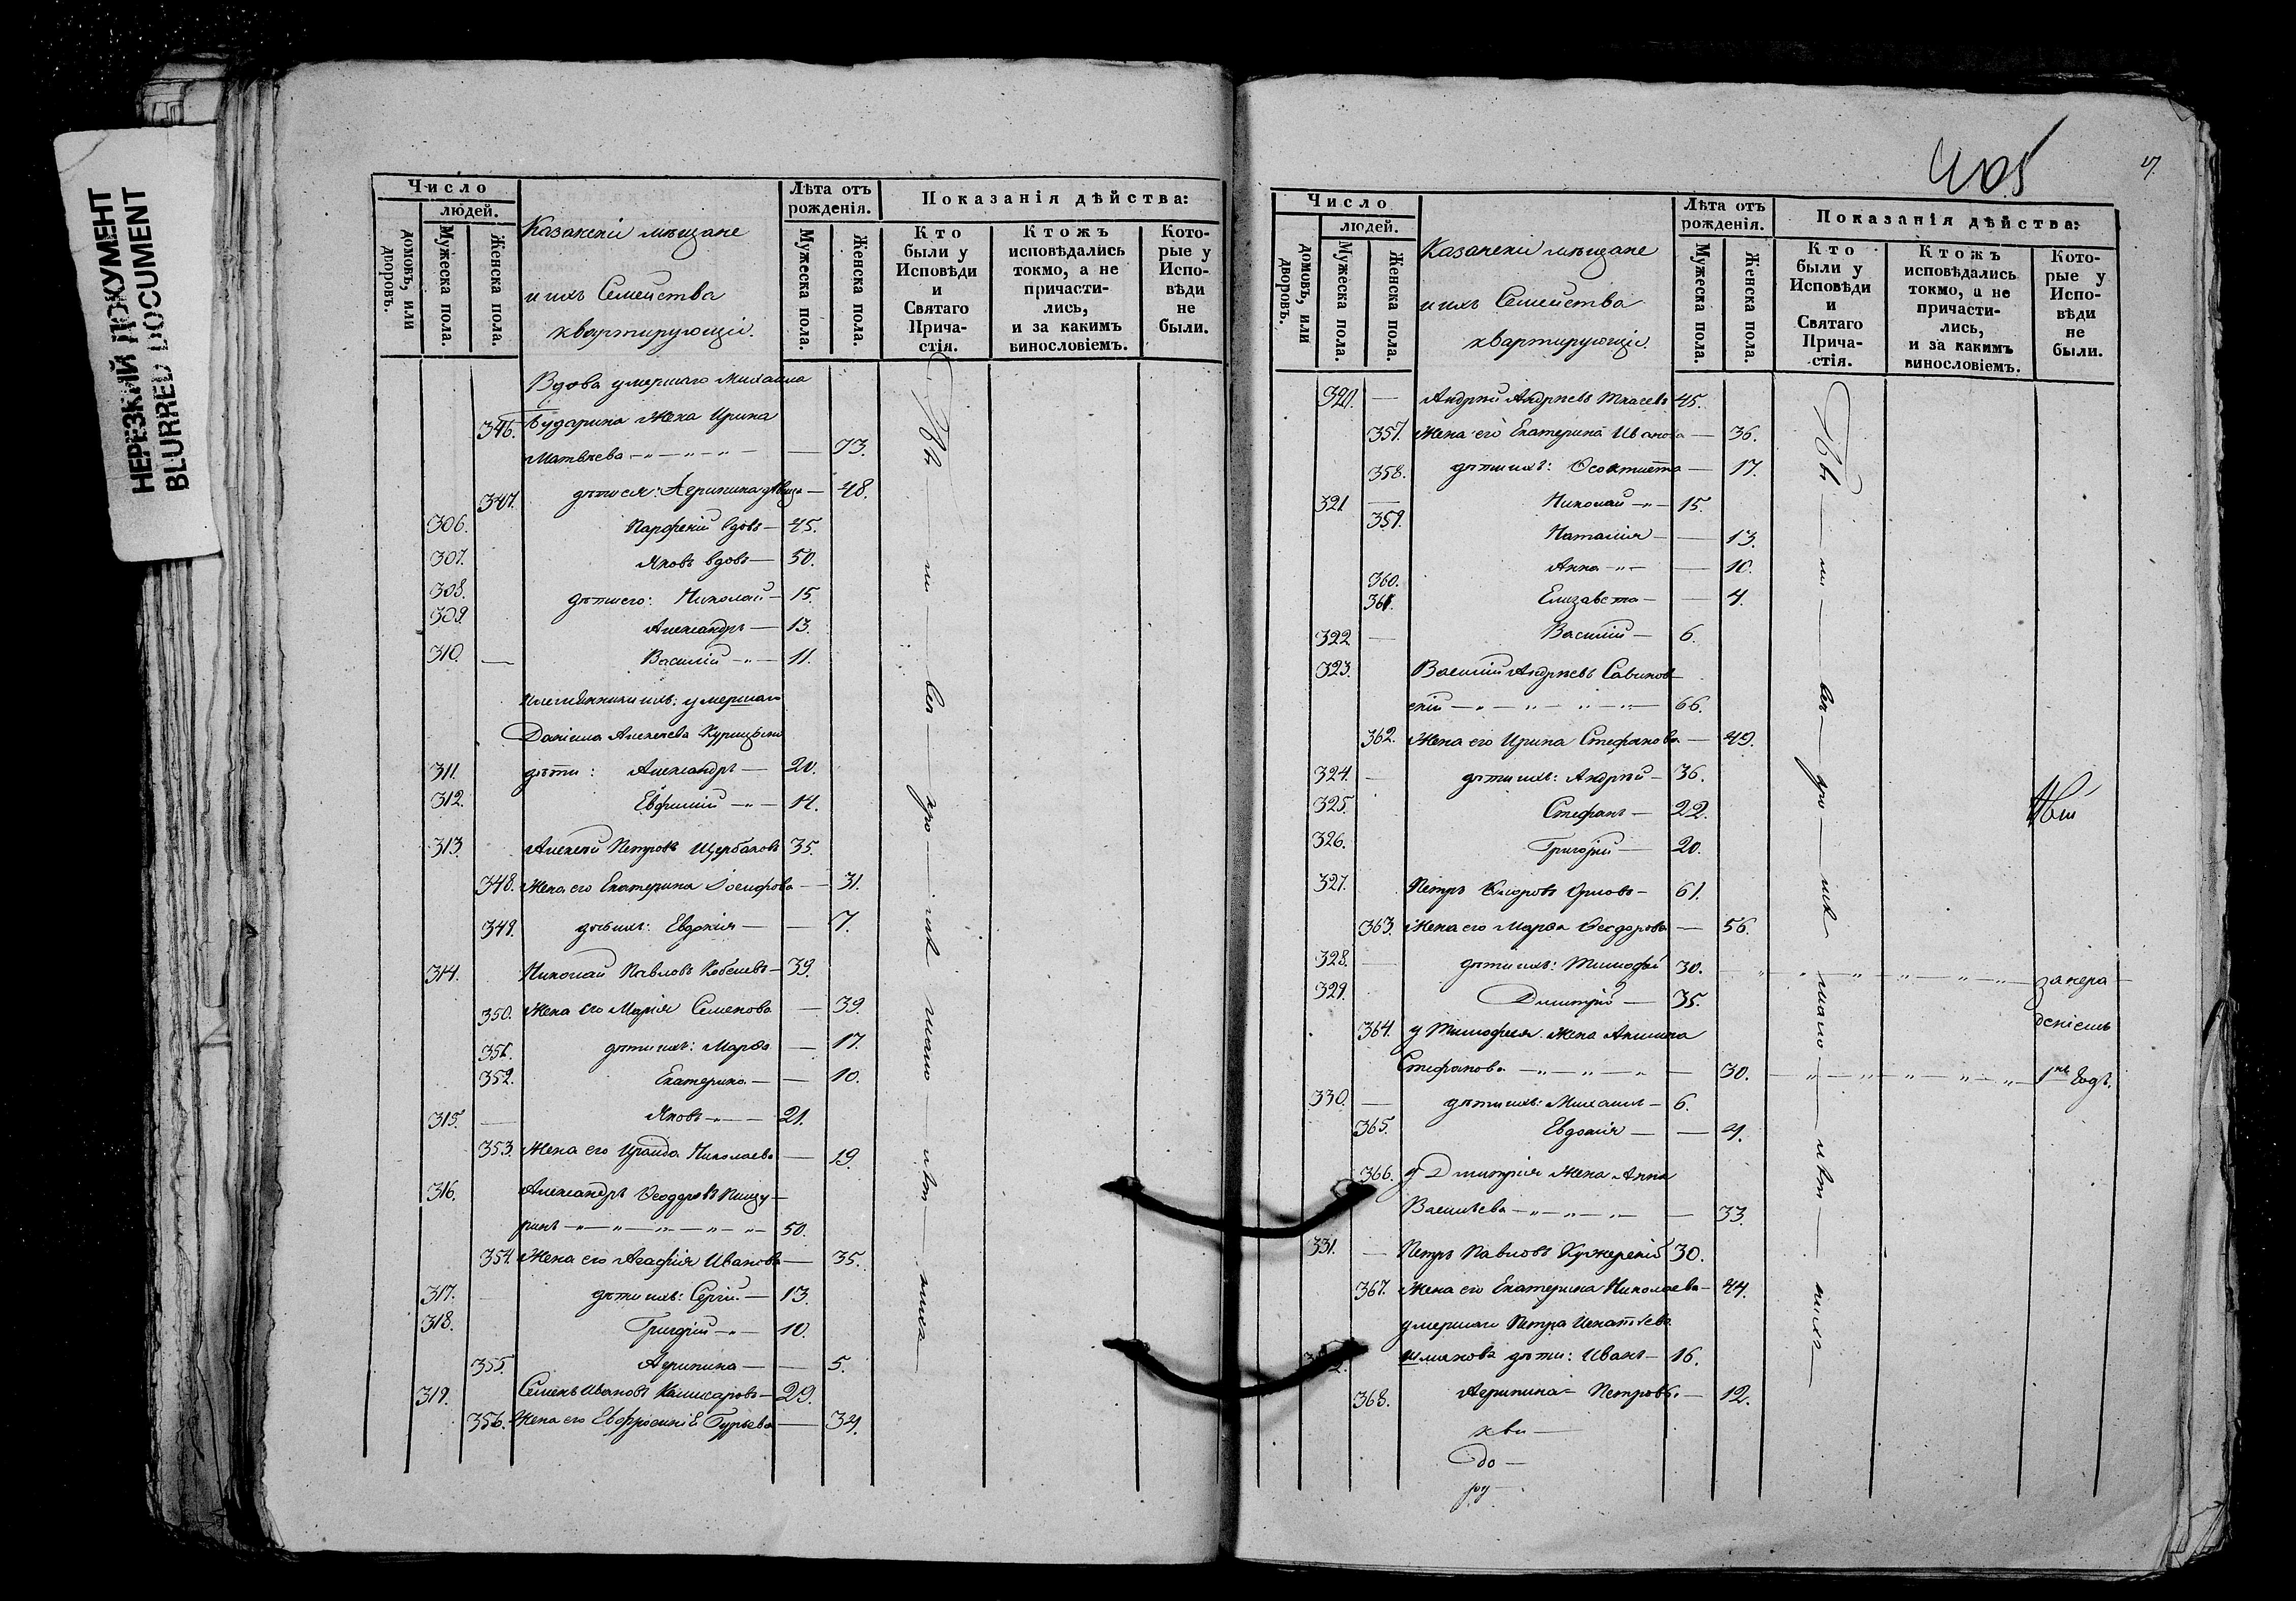 НЕРЕЗКИЙ ДОКУМЕНТ
BLURRED DOCUMENT
Число
людей.
домовъ, или дворовъ.
Мужеска пола.
Женска пола.
Казанскіи мѣщане
и ихъ Семейства
квартирующіи.
Лѣта отъ рожденія.
Мужеска пола.
Женска пола.
Показанія дѣйства:
Кто были у Исповѣди и Святаго Прича-стія.
Ктожъ исповѣдались токмо, а не причасти-лись, и за какимъ винословіемъ.
Кото-рые у Испо-вѣди не были.
Вдова умершаго Михаила
346. Бударина Жена Ирина
Матвѣева — 73.
347. дѣти ея: Агрипина дѣвица — 48.
306. Парфеній вдовъ — 45.
307. Яковъ вдовъ — 50.
308. дѣти его: Николай — 15.
309 Александръ — 13.
310. Василій — 11.
Племянники ихъ: умершаго
Даніила Алексѣева
311. дѣти: Александръ — 20.
312. Евфимій — 14.
313. Алексѣй Петровъ Щербаковъ 35.
348. Жена его Екатерина Іосифова — 31.
349. дочь ихъ: Евдокія — 7.
314. Николай Павловъ — 39.
350. Жена его Марія Семенова — 39.
351. дѣти ихъ: Марѳа — 17.
352. Екатерина — 10.
315. Яковъ — 21.
353. Жена его Ираида Николаева — 19.
316. Александръ Ѳеодоровъ Пищу-
ринъ — 50.
354. Жена его Агафія Иванова — 35.
317. дѣти ихъ: Сергій — 13.
318. Григорій — 10.
355. Агрипина — 5.
319. Семенъ Ивановъ Комисаровъ — 29.
356. Жена его Евфросинія Гурьева — 34.
405
Число
людей.
домовъ, или дворовъ.
Мужеска пола.
Женска пола.
Казанскіи мѣщане
и ихъ Семейства
квартирующіи
Лѣта отъ рожденія.
Мужеска пола.
Женска пола.
Показанія дѣйства:
Кто были у Исповѣди и Святаго Прича-стія.
Ктожъ исповѣдались токмо, а не причасти-лись, и за какимъ винословіемъ.
Кото-рые у Испо-вѣди не были.
320. — Андрей Андреевъ Ткачевъ 45.
357. Жена его Екатерина Иванова — 36.
358. дѣти ихъ: Ѳеоктиста — 17.
321 — Николай — 15.
359. Наталія — 13.
360. Анна — 10.
361. Елизавета — 4.
322 — Василій — 6.
323. Василій Андреевъ Савинов-
скій — 66.
362. Жена его Ирина Стефанова — 49.
324. — дѣти ихъ: Андрей — 36.
325. Стефанъ — 22.
326. Григорій — 20.
327. Петръ Орловъ — 61.
363. Жена его Марѳа Ѳеодорова — 56.
328. — дѣти ихъ: Тимофей 30. — за нера
329. Дмитрій — 35. деніемъ
364. у Тимофея Жена Акилина
Стефанова — 30. — 1й годъ.
330. — дѣти ихъ: Михаилъ — 6.
365. Евдокія — 4.
366. у Димитрія Жена Анна
Васильева — 33.
331. — Петръ Павловъ 30.
367. Жена его Екатерина Николаева — 44.
умершаго Петра Игнатьева
дѣти: Иванъ — 16.
368. Агрипина Петрова — 12.